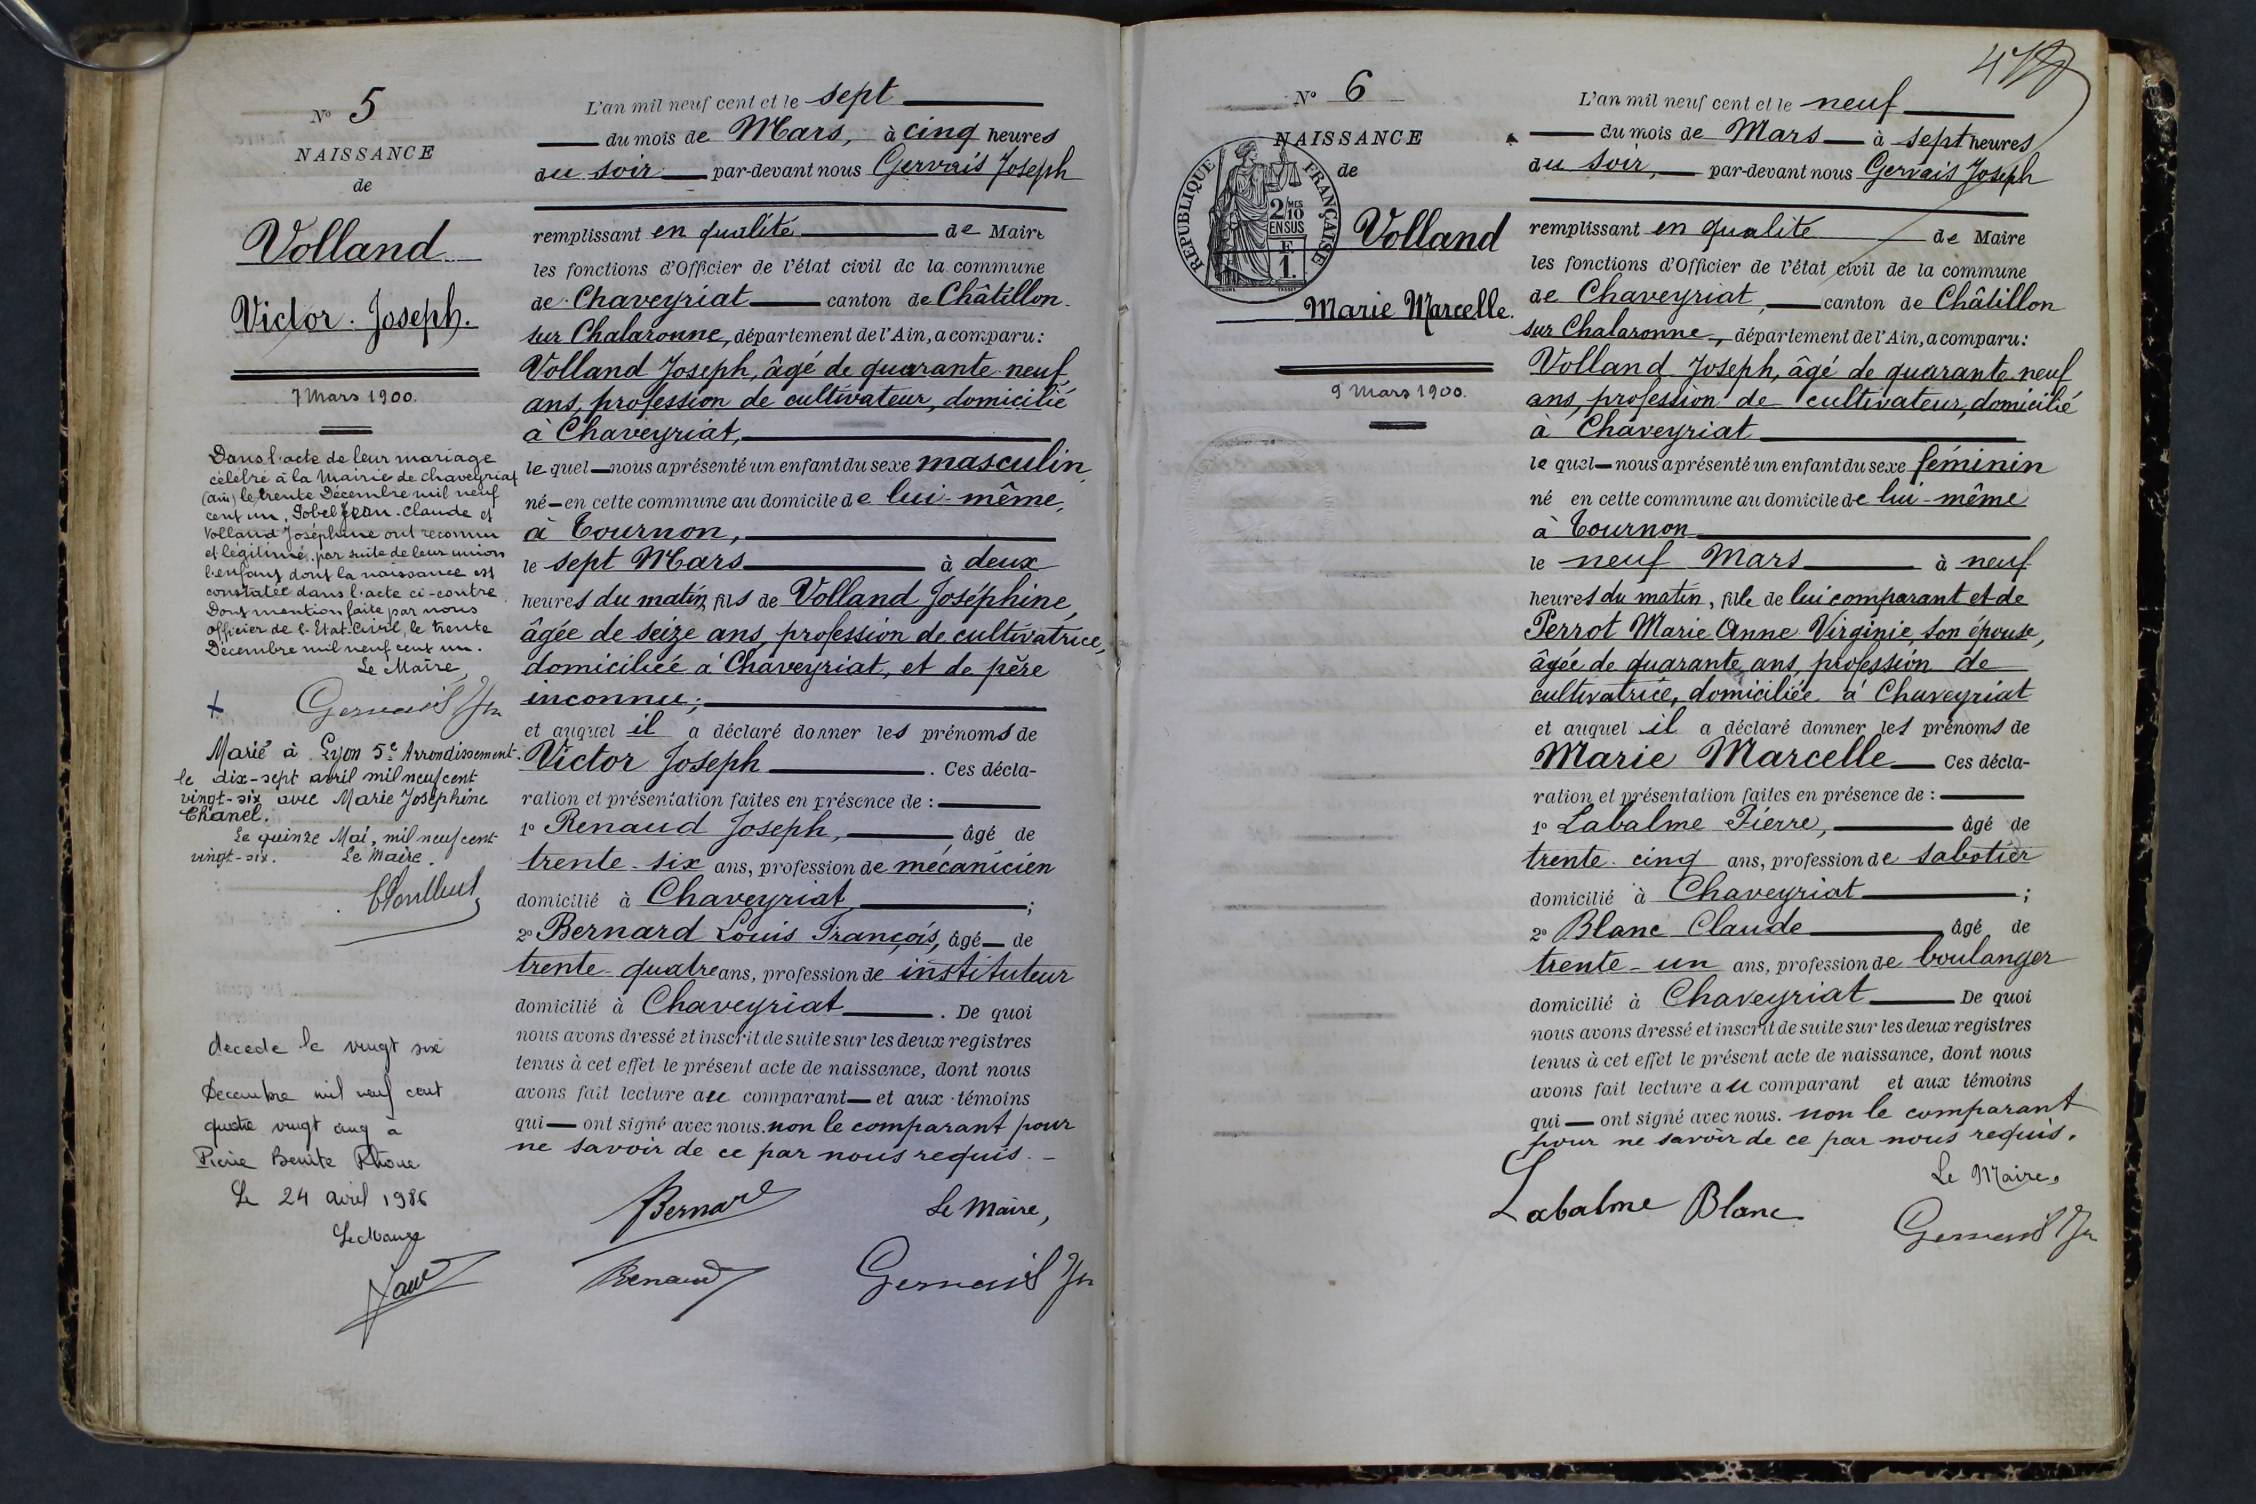 Nº 5
NAISSANCE
de
Volland
Victor Joseph.
7 Mars 1900.
Dans l'acte de leur mariage
célébré à la Mairie de Chaveyriat
(Ain) le trente Décembre mil neuf
cent un, Gobel Jean-Claude et
Volland Joséphine ont reconnu
et légitimé, par suite de leur union
l'enfant dont la naissance est
constatée dans l'acte ci-contre
Dont mention faite par nous
officier de l'Etat-Civil, le trente
Décembre mil neuf cent un.
Le Maire,
Gervais Jh
Marié à Lyon 5e Arrondissement
le dix-sept avril mil neuf cent
vingt-six avec Marie Joséphine
Chanel.
Le quinze Mai, mil neuf cent
vingt-six. Le Maire.
décédé le vingt six
Décembre mil neuf cent
quatre vingt cinq à
Pierre Bénite Rhône
Le 24 avril 1986
Le Maire
L'an mil neuf cent et le sept
du mois de Mars, à cinq heures
du soir par-devant nous Gervais Joseph
remplissant en qualité de Maire
les fonctions d'Officier de l'état civil de la commune
de Chaveyriat canton de Châtillon
sur Chalaronne, département de l'Ain, a comparu:
Volland Joseph, âgé de quarante-neuf
ans, profession de cultivateur, domicilié
à Chaveyriat,
le quel nous a présenté un enfant du sexe masculin,
né en cette commune au domicile de lui-même,
à Tournon,
le sept Mars à deux
heures du matin, fils de Volland Joséphine,
âgée de seize ans, profession de cultivatrice,
domiciliée à Chaveyriat, et de père
inconnu;
et auquel il a déclaré donner les prénoms de
Victor Joseph. Ces décla-
ration et présentation faites en présence de :
1º Renaud Joseph, âgé de
trente-six ans, profession de mécanicien
domicilié à Chaveyriat, ;
2º Bernard Louis François, âgé de
trente-quatre ans, profession de instituteur
domicilié à Chaveyriat. De quoi
nous avons dressé et inscrit de suite sur les deux registres
tenus à cet effet le présent acte de naissance, dont nous
avons fait lecture au comparant et aux témoins
qui ont signé avec nous. non le comparant pour
ne savoir de ce par nous requis. -
Bernard Le Maire,
Renaud Gervais Jh
Nº 6
NAISSANCE
de
RÉPUBLIQUE FRANÇAISE
2 MES
10
EN SUS
F
1.
Volland
Marie Marcelle.
9 Mars 1900.
L'an mil neuf cent et le neuf
du mois de Mars à sept heures
du soir, par-devant nous Gervais Joseph
remplissant en qualité de Maire
les fonctions d'Officier de l'état civil de la commune
de Chaveyriat, canton de Châtillon
sur Chalaronne, département de l'Ain, a comparu:
Volland Joseph, âgé de quarante-neuf
ans, profession de cultivateur, domicilié
à Chaveyriat
le quel nous a présenté un enfant du sexe féminin
né en cette commune au domicile de lui-même
à Tournon
le neuf Mars à neuf
heures du matin, fille de lui comparant et de
Perrot Marie Anne Virginie, son épouse,
âgée de quarante ans, profession de
cultivatrice, domiciliée à Chaveyriat
et auquel il a déclaré donner les prénoms de
Marie Marcelle Ces décla-
ration et présentation faites en présence de :
1º Labalme Pierre, âgé de
trente-cinq ans, profession de sabotier
domicilié à Chaveyriat ;
2º Blanc Claude âgé de
trente-un ans, profession de boulanger
domicilié à Chaveyriat De quoi
nous avons dressé et inscrit de suite sur les deux registres
tenus à cet effet le présent acte de naissance, dont nous
avons fait lecture au comparant et aux témoins
qui ont signé avec nous. non le comparant
pour ne savoir de ce par nous requis.
Le Maire,
Labalme Blanc Gervais Jh